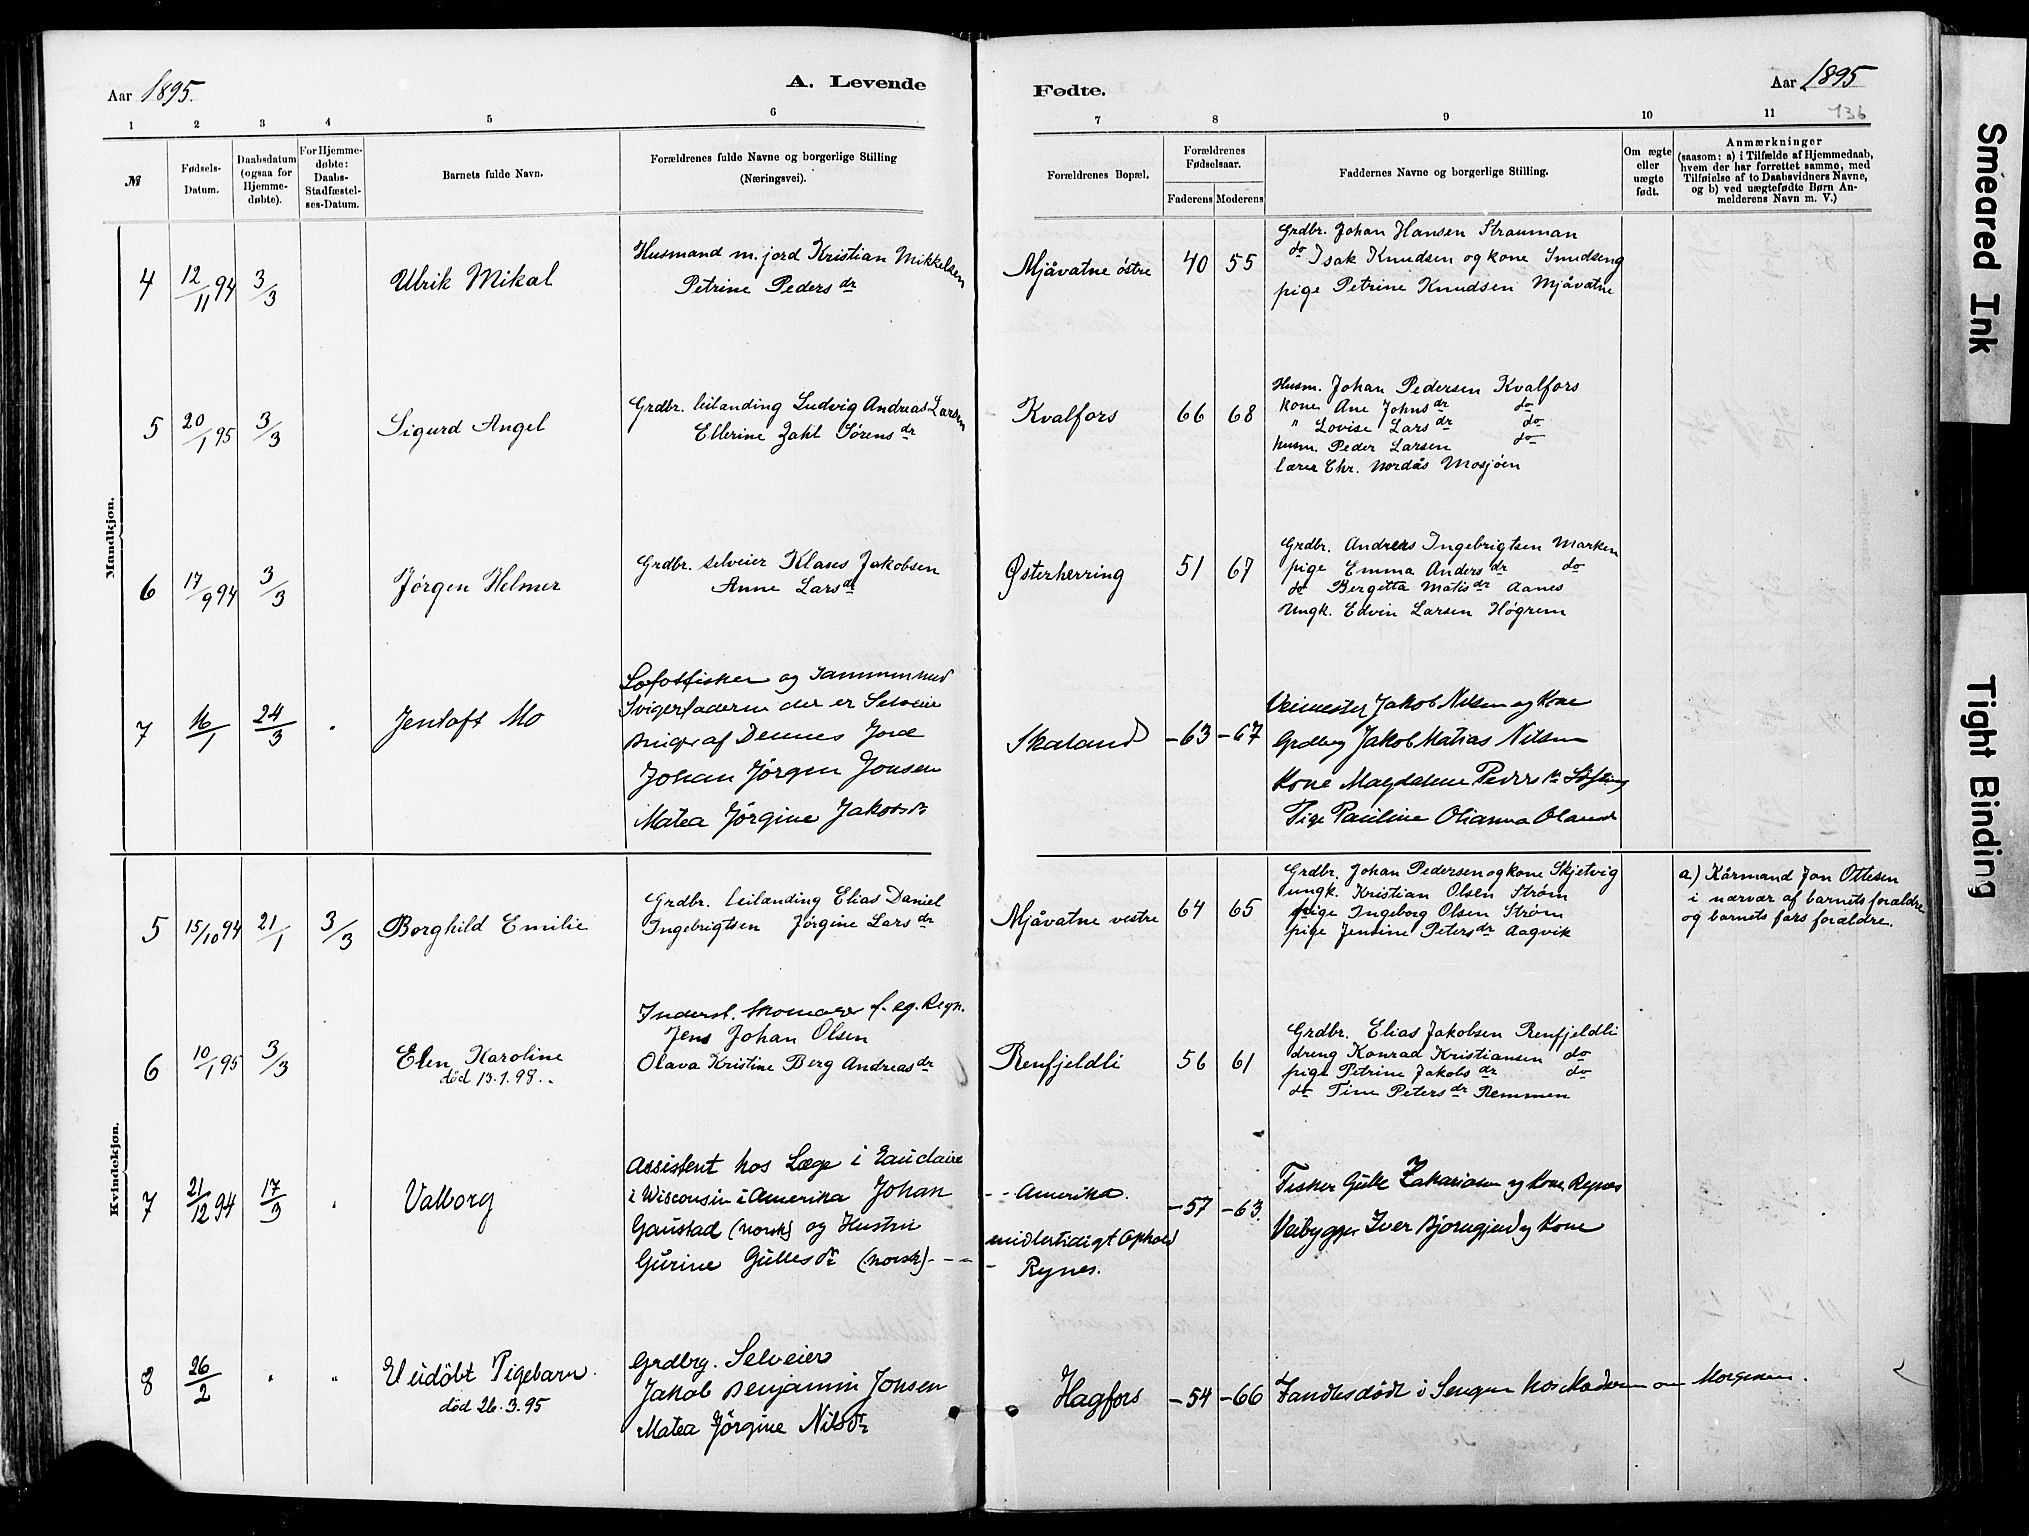 Aar 1895.
A. Levende
Fødte.
Aar 1895
136
1 2 3 4 5 6 7 8 9 10 11
№
Fødsels-
Datum.
Daabsdatum
(ogsaa for
Hjemme-
døbte).
For Hjemme-
døbte:
Daabs-
Stadfæstel-
ses-Datum.
Barnets fulde Navn.
Forældrenes fulde Navne og borgerlige Stilling
(Næringsvei).
Forældrenes Bopæl.
Forældrenes
Fødselsaar.
Faderens Moderens
Faddernes Navne og borgerlige Stilling.
Om ægte
eller
uægte
født.
Anmærkninger
(saasom: a) i Tilfælde af Hjemmedaab,
hvem der har forrettet samme, med
Tilføielse af to Daabsvidners Navne,
og b) ved uægtefødte Børn An-
melderens Navn m. V.)
Mandkjøn.
4 12/11 94 3/3 Ulrik Mikal
Husmand m. jord Kristian Mikkelsen
Petrine Pedersdr
Mjåvatne østre 40 55
Grdbr. Johan Hansen Strauman
do Isak Knudsen og kone Smedseng
pige Petrine Knudsen Mjåvatne
5 20/1 95 3/3 Sigurd Angel
Grdbr. leilanding Ludvig Andreas Larsen
Ellerine Zahl Sørensdr
Kvalfors 66 68
Husm. Johan Pedersen Kvalfors
kone Ane Johnsdr do
" Lovise Larsdr do
husm. Peder Larsen do
lærer Chr. Nordås Mosjøen
6 17/9 94 3/3 Jørgen Helmer
Grdbr. selveier Klaus Jakobsen
Anne Larsd
Østerherring 51 67
Grdbr. Andreas Ingebrigtsen Marken
pige Emma Andersdr do
do Bergitta Matisdr Aanes
Ungk. Edvin Larsen Høgrem
7 16/1 24/3 " Jentoft Mo
Lofotfisker og sammen med
Svigerfaderen der er Selveier
Bruger af Dennes Jord
Johan Jørgen Jonsen
Matea Jørgine Jakobsdr
Skaland -63 -67
Veimester Jakob Nilsen og Kone
Grdbrg Jakob Matias Nilsen
Kone Magdalene Pedersdr
Pige Pauline Olianna Olausd
Kvindekjøn.
5 15/10 94 21/1 3/3 Borghild Emilie
Grdbr. leilanding Elias Daniel
Ingebrigtsen Jørgine Larsdr
Mjåvatne vestre 64 65
Grdbr. Johan Pedersen og kone Skjetvig
ungk. Kristian Olsen Strøm
pige Ingeborg Olsen Strøm
pige Jensine Petersdr Aagvik
a) Kårmand Jon Ottesen
i nærvær af barnets forældre
og barnets fars forældre.
6 10/1 95 3/3 Elen Karoline
død 13.1.98.
Inderst. Skomager f. eg. Regn.
Jens Johan Olsen
Olava Kristine Berg Andreasdr
Renfjeldli 56 61
Grdbr. Elias Jakobsen Renfjeldli
dreng Konrad Kristiansen do
pige Petrine Jakobsdr do
do Tine Petersdr Remmen
7 21/12 94 17/3 " Valborg
Assistent hos Læge i Eauclaire
i Wisconsin i Amerika Johan
Gaustad (norsk) og Hustru
Gurine Gullesdr (norsk) - - -
- - Amerika.
midlertidigt Ophold
- Rynes.
-57 -63.
Fisker Gulle Zakariasen og Kone Rynes
Veibygger Iver Bjørngjerd og Kone
8 26/2 " " Uuidøbt Pigebarn.
død 26.3.95
Grdbrg. Selveier
Jakob Benjamin Jonsen
Matea Jørgine Nilsdr
Hagfors -54 -66
Fandtes dødt i Sengen hos Moderen om Morgenen.
Smeared Ink
Tight Binding